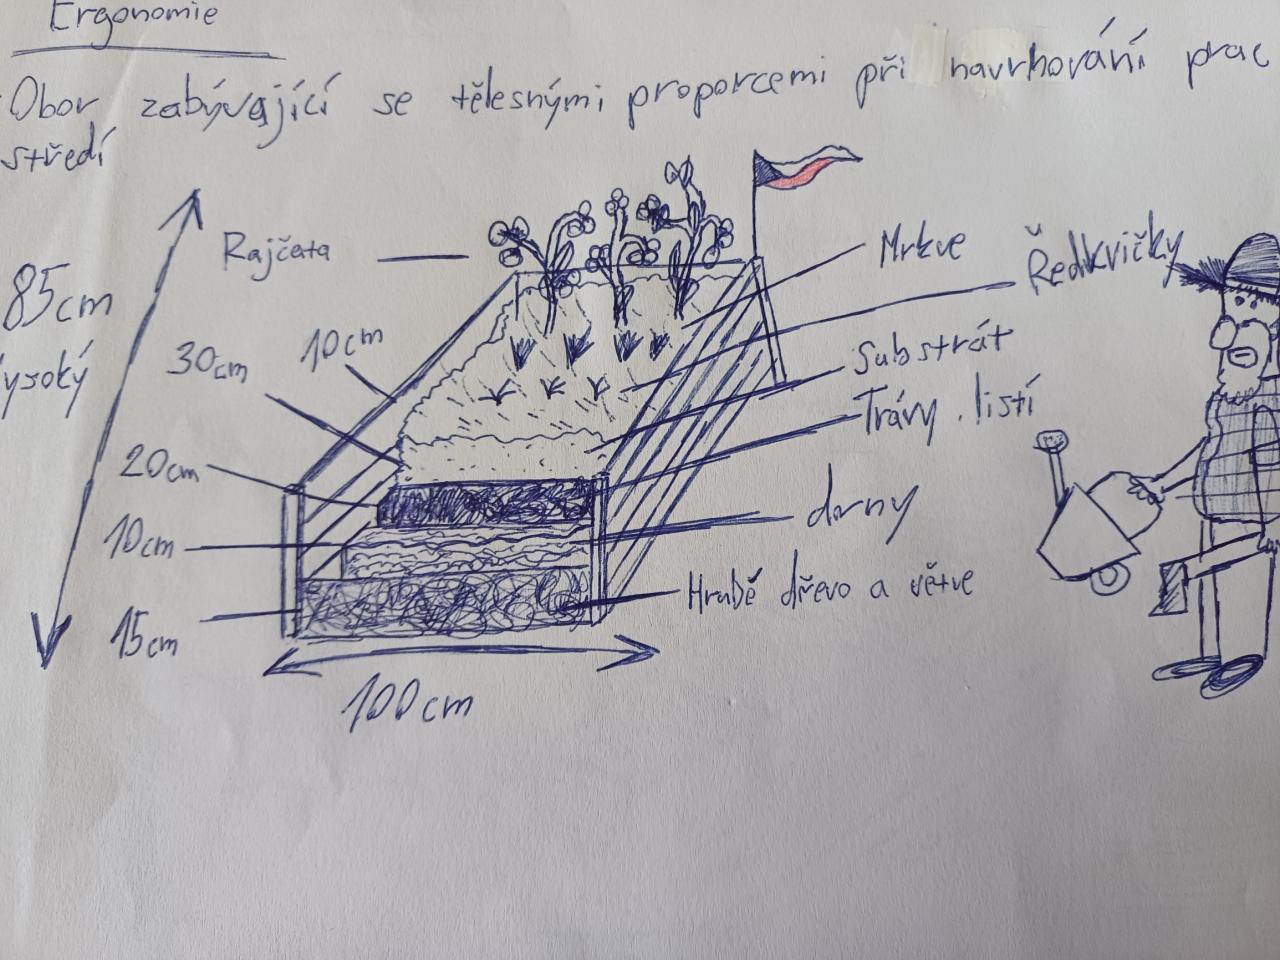 Ergonomie
Obor zabývající se tělesnými proporcemi při navrhování prac
středí
Rajčata
Mrkve
Ředkvičky
85cm
ysoký
30cm
10cm
Substrát
Trávy. listí
20cm
drny
10cm
Hrubě dřevo a větve
15cm
100cm